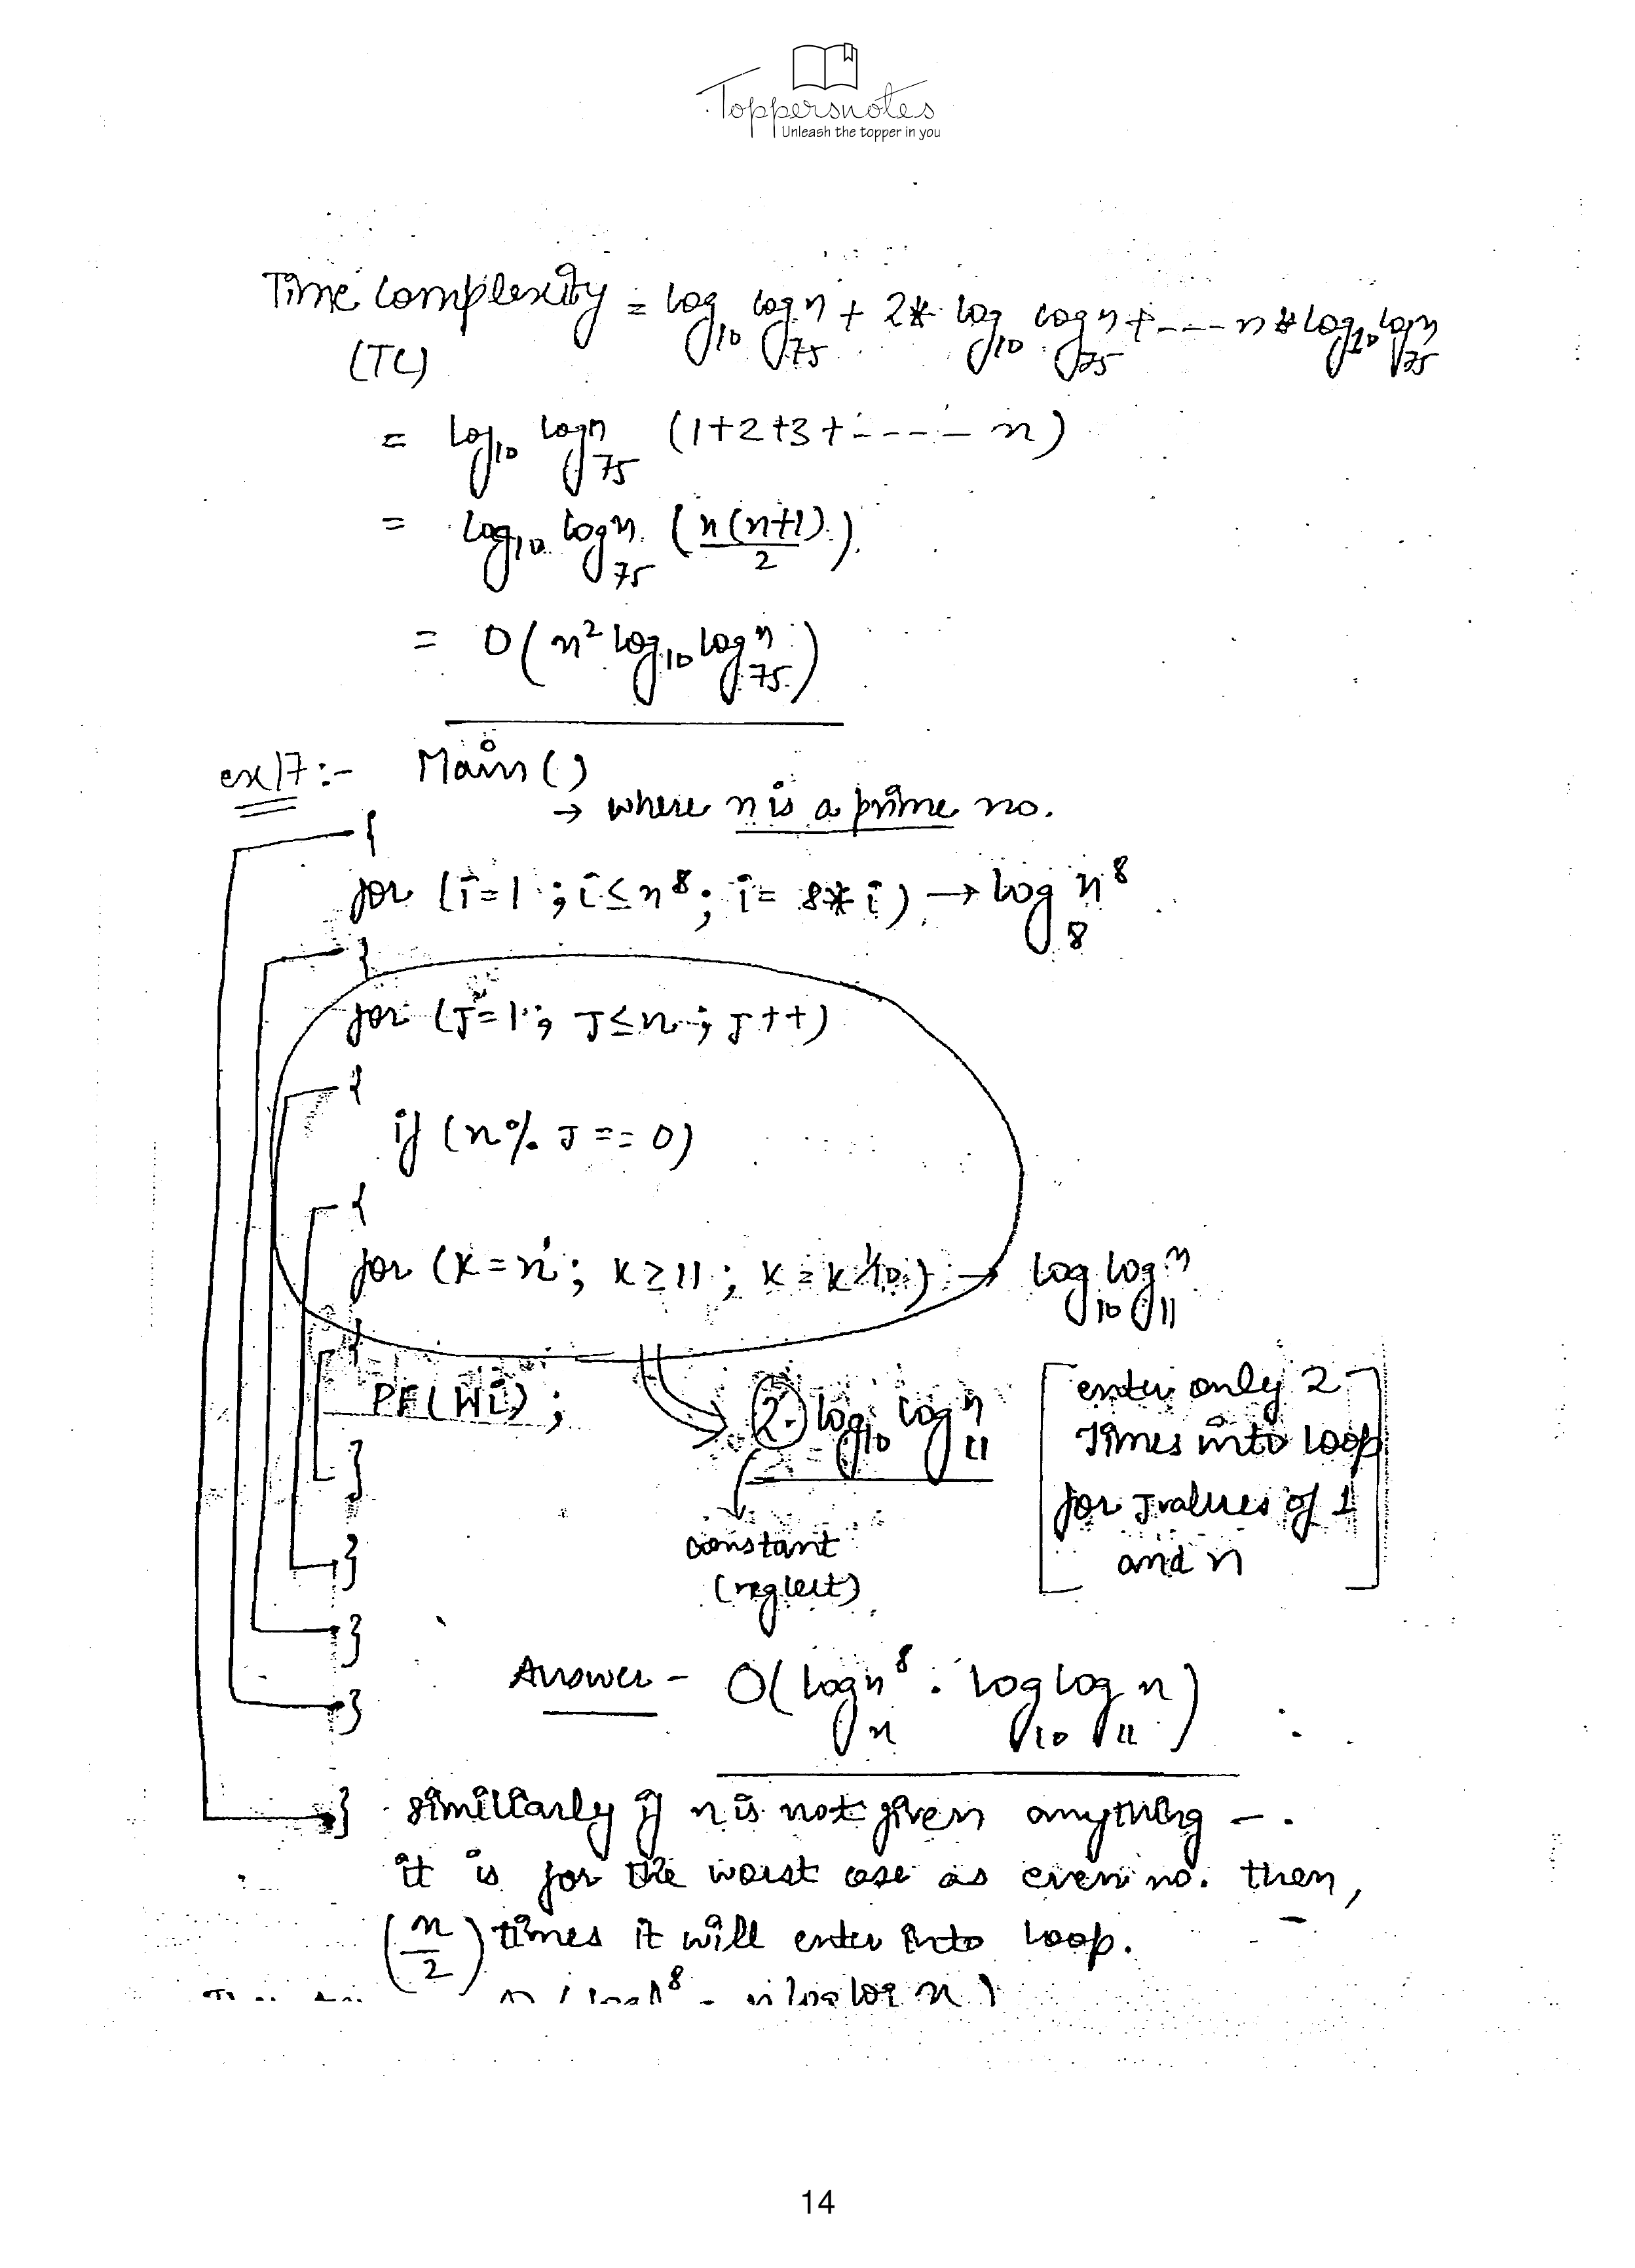 Toppersnotes
Unleash the topper in you
Time complexity = log₁₀ log₇₅ n + 2* log₁₀ log₇₅ n + ---- n * log₁₀ log₇₅ n
(TC)
= log₁₀ log₇₅ n (1+2+3+----- n)
= log₁₀ log₇₅ n (n(n+1)/2)
= O(n² log₁₀ log₇₅ n)
ex)7:- Main()
→ where n is a prime no.
{
for (i=1; i≤n⁸; i= 8*i) → log₈ n⁸
{
for (J=1; J≤n; J++)
{
if (n% J == 0)
{
for (K=n; K≥11; K=K^1/10) → log₁₀ log₁₁ n
{
PF(Hi); 2. log₁₀ log₁₁ n
enter only 2
times into loop
for J values of 1
and n
}
constant
(neglect)
}
}
Answer - O(log n⁸ n . log₁₀ log₁₁ n)
}
} similiarly if n is not given anything -.
it is for the worst case as even no. then,
(n/2) times it will enter into loop.
14